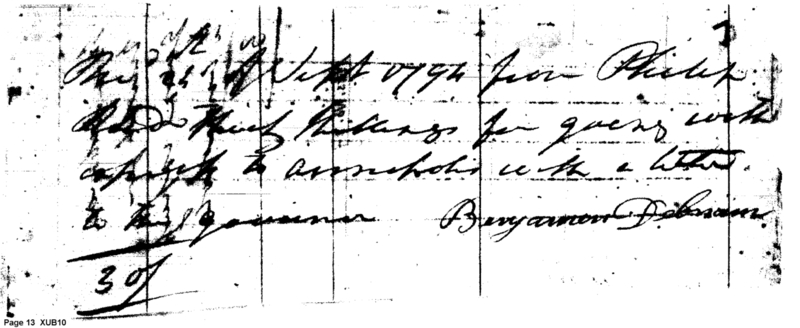 Recd 24th of Sept 1794 from Philip
Reed Thirty Shillings for going with
express to annapolis with a letter
to the governor Benjamin Dehnam
30/
Page 13 XUB10